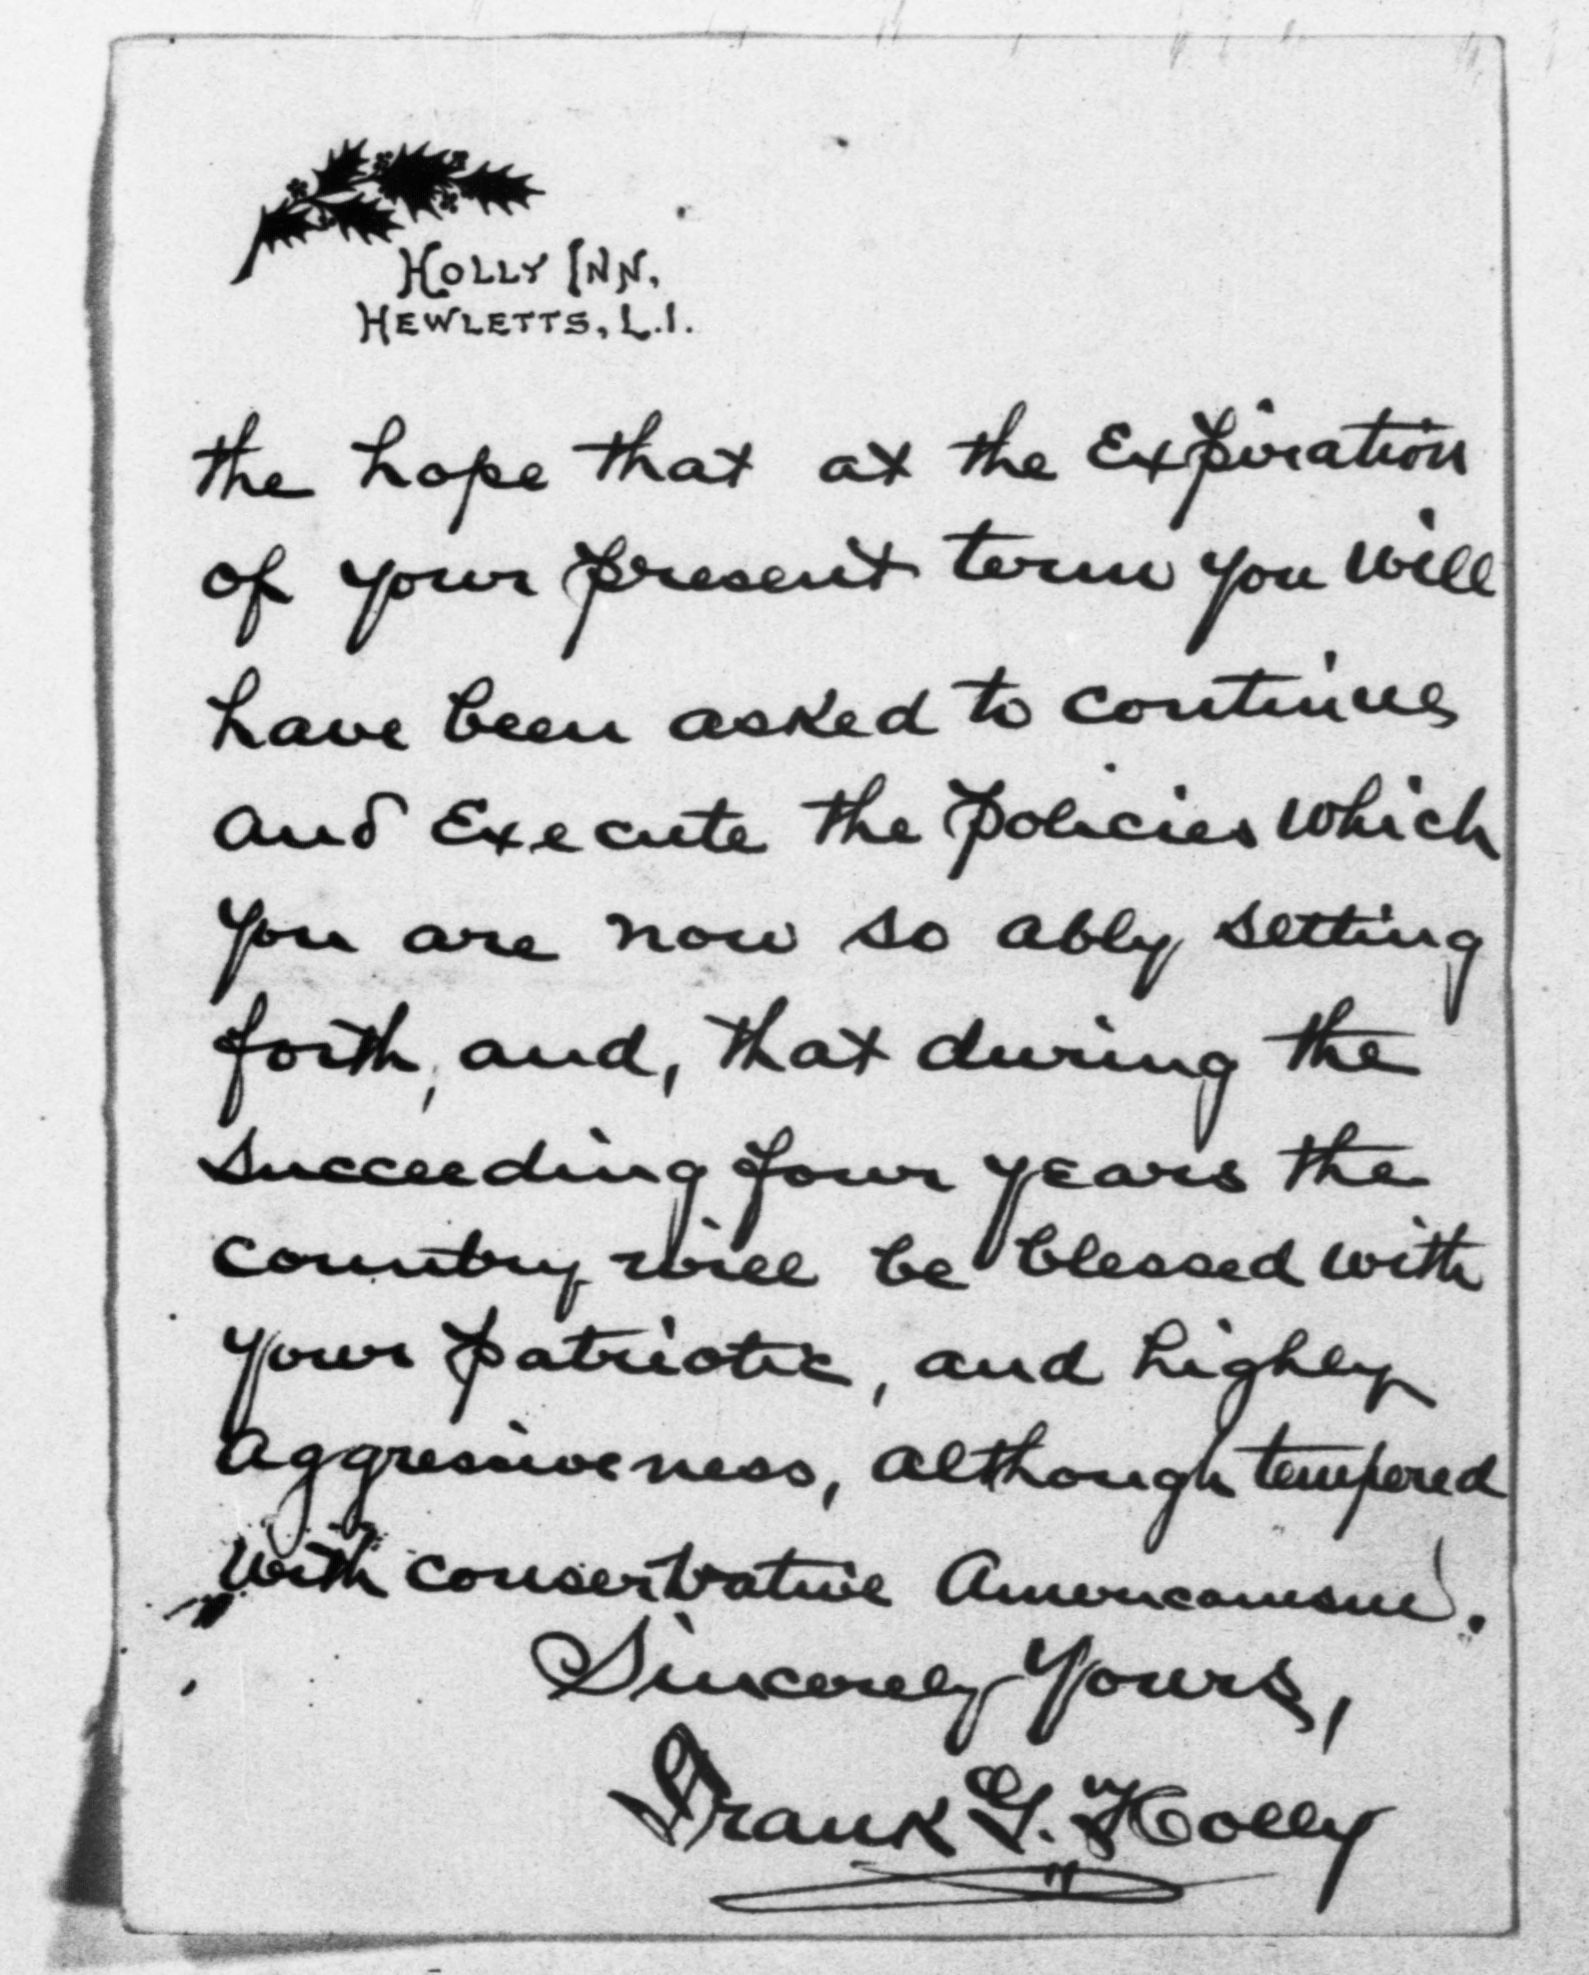 HOLLY INN,
HEWLETTS, L.I.
the hope that at the Expiration
of your present term you will
have been asked to continue
and Execute the policies which
you are now so ably setting
forth, and, that during the
succeeding four years the
country will be blessed with
your patriotic, and highly
aggressiveness, although tempered
with conservative Americanism.
Sincerely Yours,
Frank G. Holly